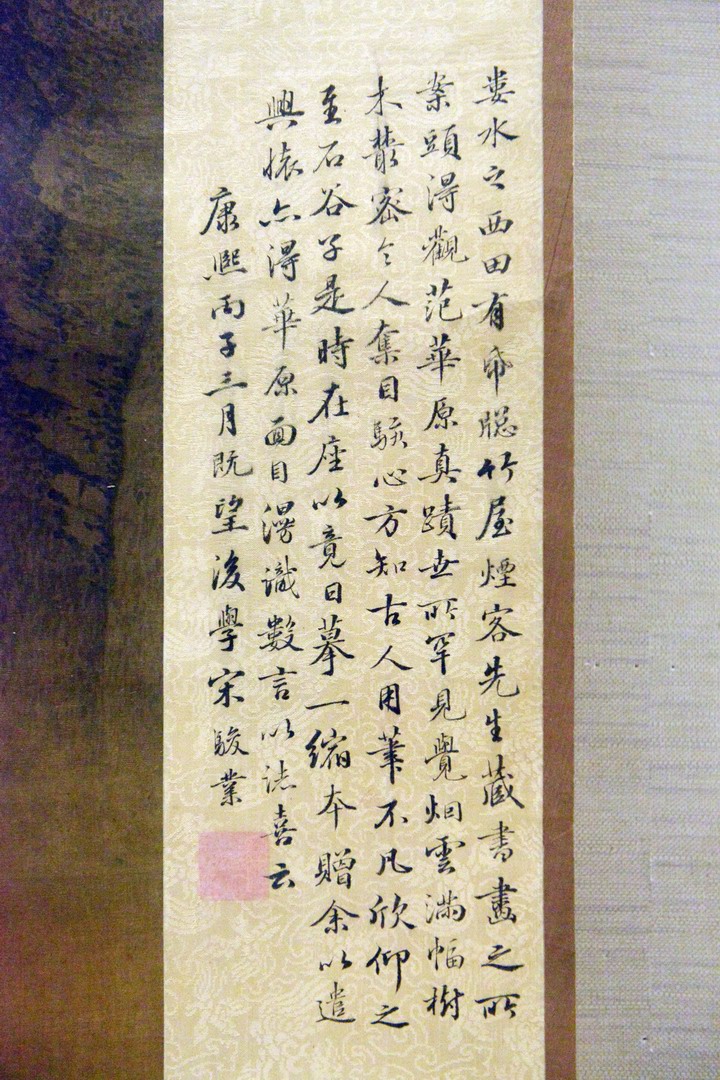 婁水之西田有帋聰竹屋煙客先生藏書畫之所
案頭得觀范華原真蹟世所罕見覺烟雲滿幅樹
木叢密令人奪目駭心方知古人用筆不凡欣仰之
至石谷子是時在座以竟日摹一縮本贈余以遣
興懐亦得華原面目漫識數言以誌喜云
康熙丙子三月既望後學宋駿業